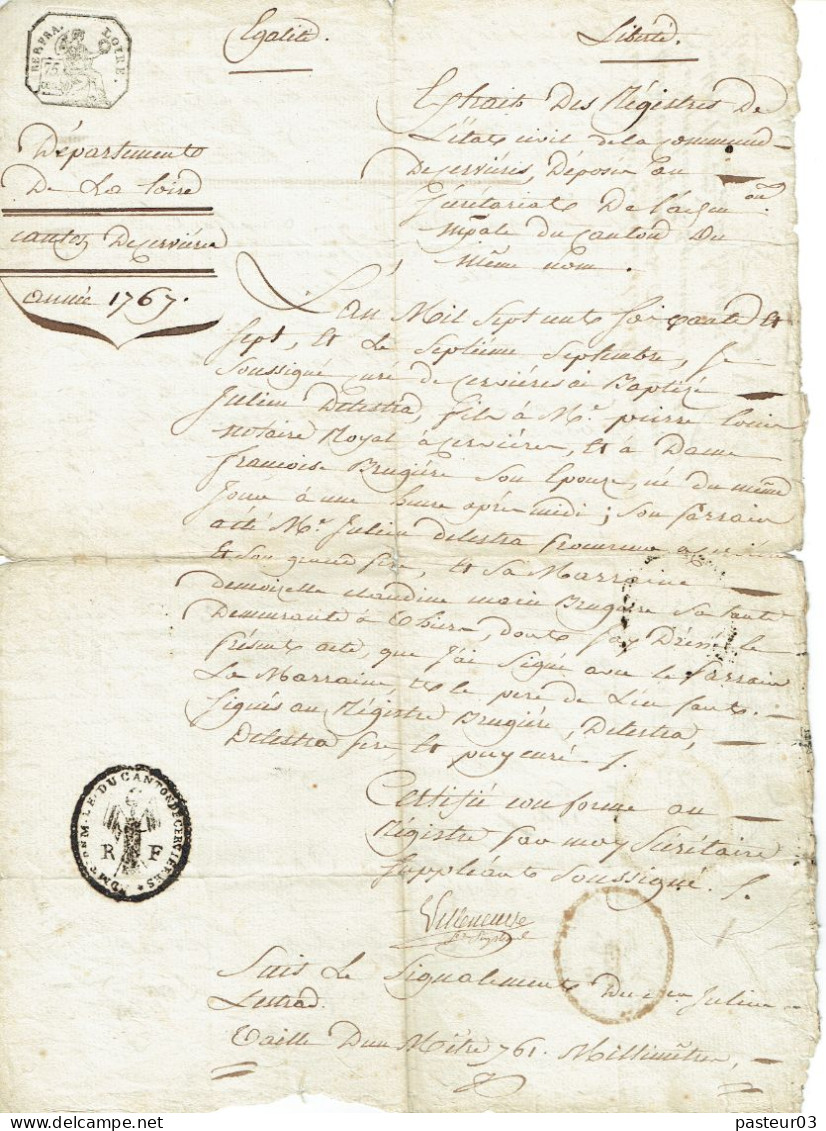 REP. FRA. LOIRE.
75
Egalité. Liberté.
Département
De La Loire
canton De cerviere
année 1767.
Extrait Des Régistres De
L'état civil de la commune
De cerviéres, Déposée au
Sécrétariat De l'adm on
mpale du canton Du
même nom.
L'an Mil Sept cents soixante et
sept, et Le Septième Septembre, je
Soussigné curé de cerviéres ai Baptizé
Julien Delestra, fils à Mr. pierre Louis
notaire Royal à cerviere, et à Dame
francoise Brugiére Son Epouze, né du même
Jour à une heure après midi; Son parrain
a été Mr. Julien delestra procureur a cerviere
et Son grand pere, et Sa Marraine
demoizelle claudine marie Brugiere Sa tante
Demeurante à thiers, dont j'ay Dressé le
présent acte, que j'ai Signé avec le parrain
La Marraine, et le pere de L'enfant.
Signés au Régistre Brugiére, Delestra,
Delestra pere, et puy curé.
Certifié conforme au
Régistre par moy Sécrétaire
Suppléant Soussigné.
Villeneuve
ADM. ON M. LE. DU CANTON DE CERVIERES
R F
Suit Le Signalement Du Julien
Lestrad.
Taille D'un Mètre 761. Millimètres,
pasteur03